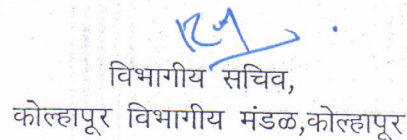 विभागीय सचिव,
कोल्हापूर विभागीय मंडळ,कोल्हापूर